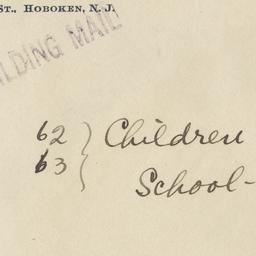 St., Hoboken, N. J.
ILDING MAIL
62 } Children
63 School-